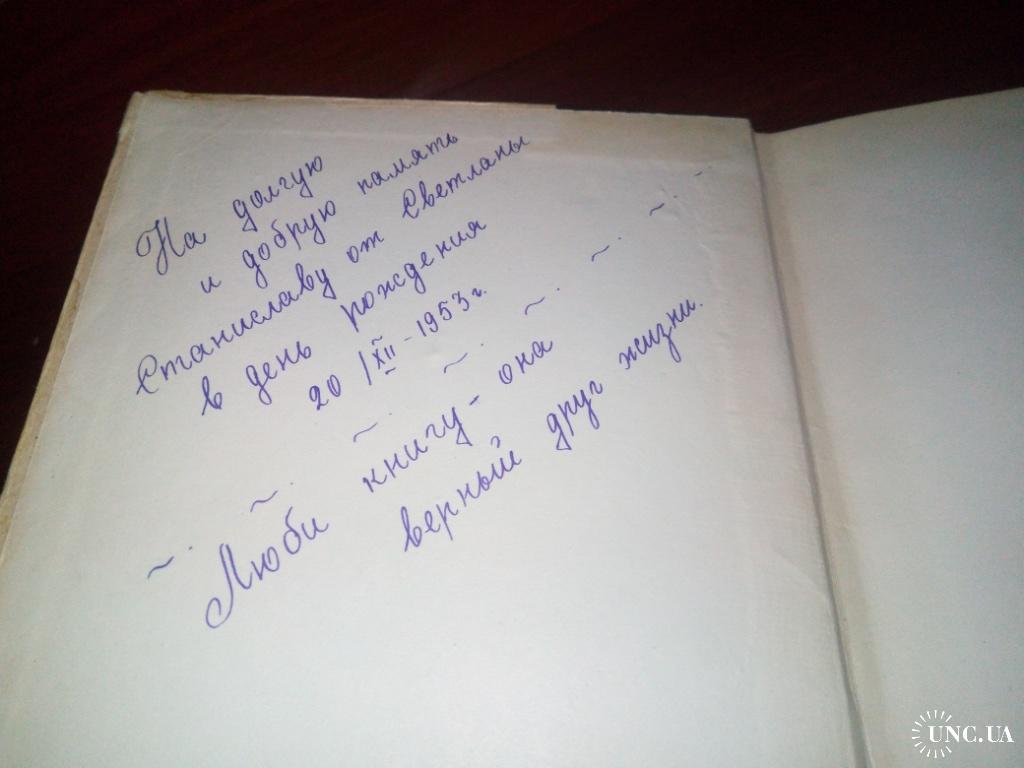 На долгую
и добрую память
Станиславу от Светланы
в день рождения
20/XII-1953г.
~ ~ ~ ~ ~ ~ ~
Люби книгу - она
верный друг жизни.
UNC.UA